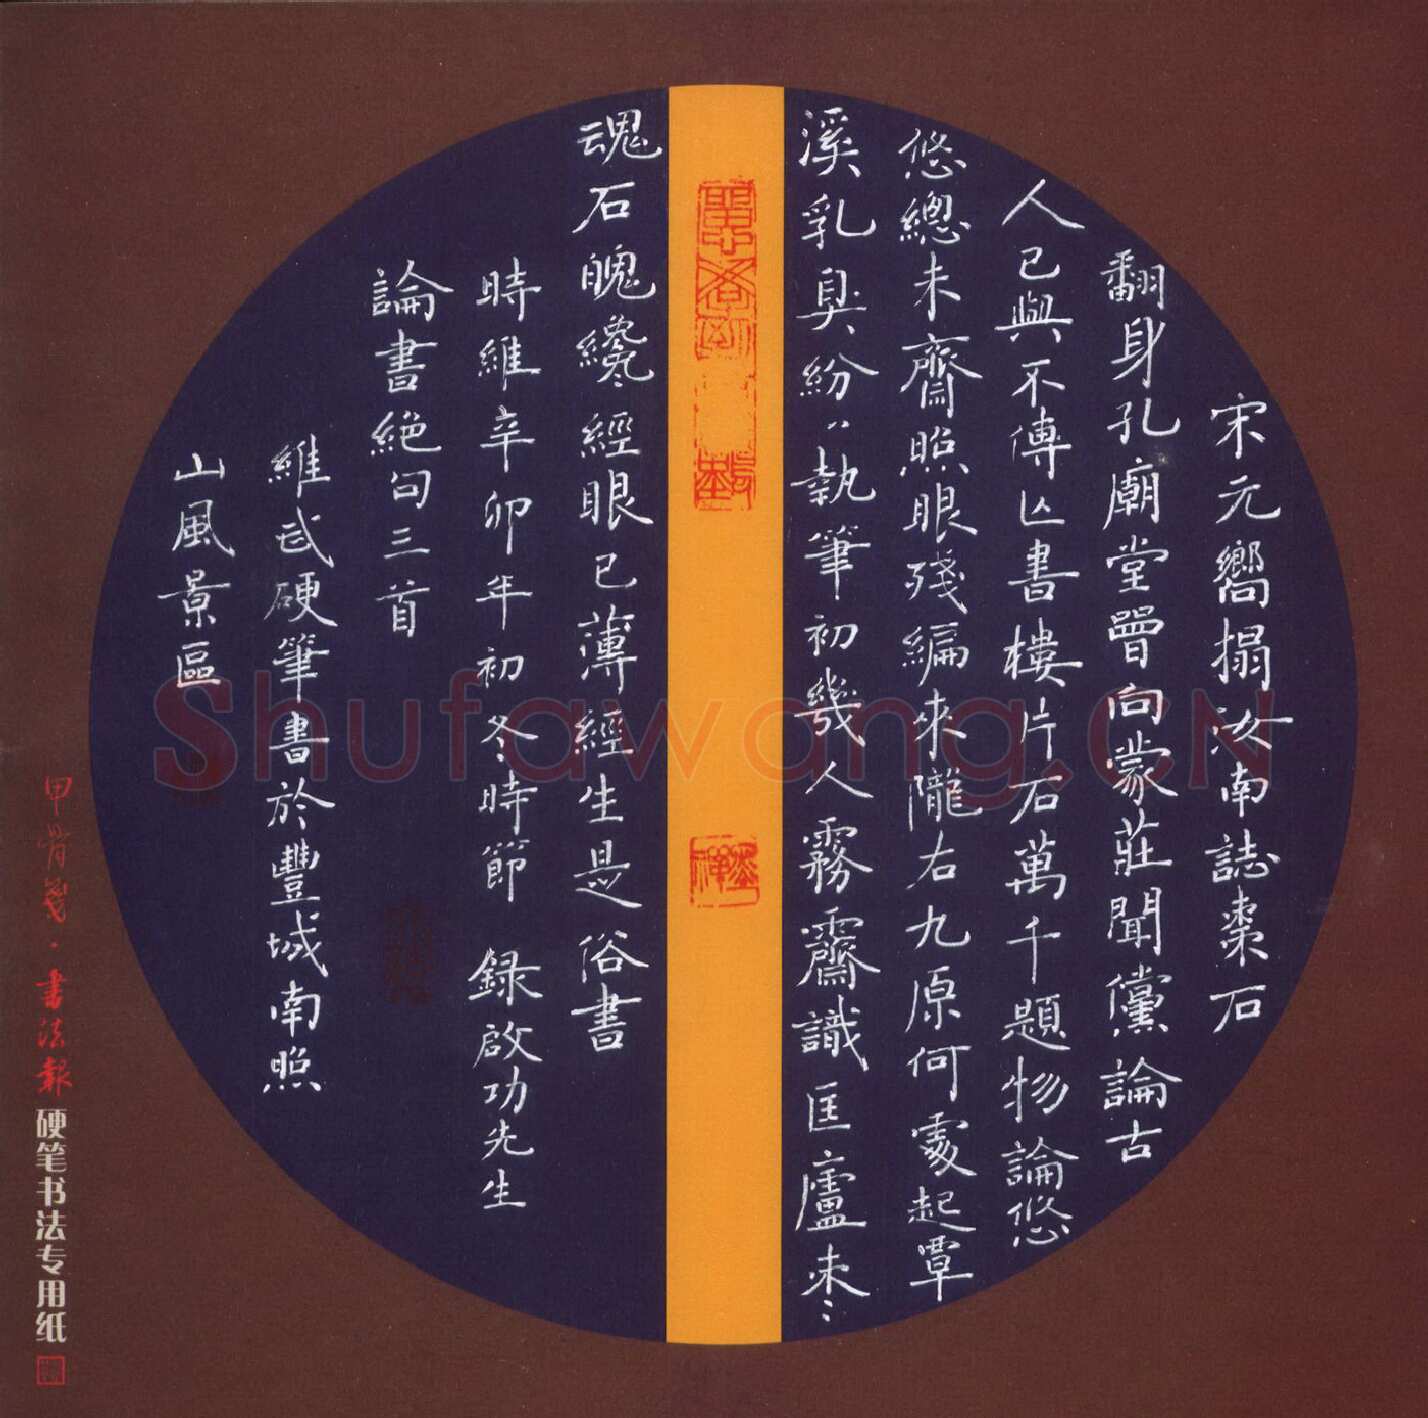 宋元嚮搨汝南誌棗石
翻身孔廟堂曾向蒙莊聞儻論古
人已與不傳亾書樓片石萬千題物論悠
悠總未齊照眼殘編來隴右九原何處起覃
溪乳臭紛〻執筆初幾人霧霽識匡廬枣
魂石魄纔經眼已薄經生是俗書
時維辛卯年初冬時節 録啟功先生
論書絕句三首
維武硬筆書於豐城南照
山風景區
甲骨箋·書法報
硬笔书法专用纸
Shufawang.CN